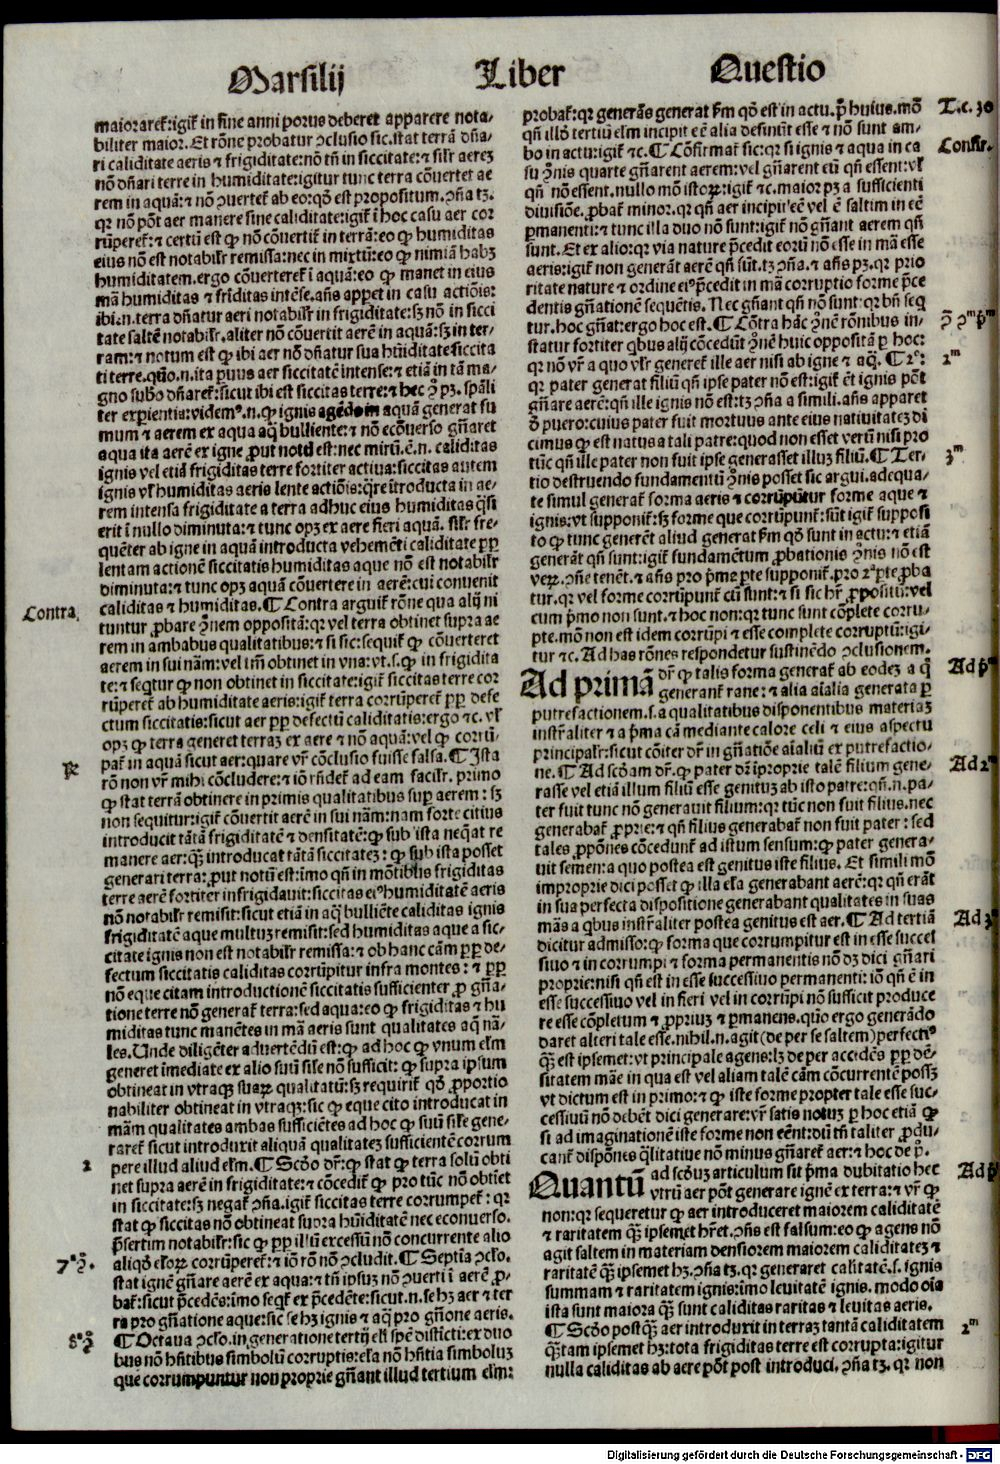 Marsilij Liber Questio
maiorareƭ:igiƭ in fine anni porus deberet apparere nota⸗
biliter maior. Et rōne probatur ɔclusio sic. stat terrā dñā⸗
ri caliditate aeris ⁊ frigiditate: nō tñ in siccitate: ⁊
nō dñari terre in humiditate: igitur tunc terra cōuertet ae
rem in aquā: ⁊ nō ab eo: qd̄ est propositum. ꝯña tꝫ.
qꝛ nō pōt aer manere sine caliditate: igiƭ ī hoc casu aer cor
rūpereƭ: ⁊ certū est ꝙ nō cōuertiƭ in terrā: eo ꝙ humiditas
eius nō est notabilr̄ remissa: nec in mixtū: eo ꝙ nimiā habꝫ
humiditatem. ergo cōuertereƭ ī aquā: eo ꝙ manet in eius
mā humiditas ⁊ friditas intēse. añs appet in casu actiōis:
ibi .n. terra dñatur aeri notabilr̄ in frigiditate: sꝫ nō in sicci
tate saltē notabilr̄. aliter nō cōuertit aerē in aquā: sꝫ in ter⸗
ram: ⁊ notum est ꝙ ibi aer nō dñatur sua hūiditate siccita
ti terre. .n. ita puus aer siccitatē intense: ⁊ etiā in tā ma⸗
gno subo dñareƭ: sicut ibi est siccitas terre: ⁊ hec ꝯ pꝫ. spāli
ter expientia: videmꝰ .n. ꝙ ignis agēdo in aquā generat fu
mum ⁊ aerem ex aqua aq̄ bulliente: ⁊ nō ecōuerso gñaret
aqua ita aerē ex igne ꝓut notū est: nec mirū. ē .n. caliditas
ignis vel etiā frigiditas terre fortiter actiua: siccitas autem
ignis vl̄ humiditas aeris lente actiōis: q̄re ītroducta in ae⸗
rem intensa frigiditate a terra adhuc eius humiditas q̄si
erit ī nullo diminuta: ⁊ tunc opꝫ ex aere fieri aquā. silr̄ fre⸗
quēter ab igne in aquā introducta vehemēti caliditate ꝓp
lentam actionē siccitatis humiditas aque nō est notabilr̄
diminuta: ⁊ tunc opꝫ aquā cōuertere in aerē: cui conuenit
Contra. caliditas ⁊ humiditas. ¶ Contra arguiƭ rōne qua alij ni
tuntur ꝓbare ꝯnem oppositā: qꝛ vel terra obtinet supra ae
rem in ambabus qualitatibus: ⁊ si sic: sequiƭ ꝙ cōuerteret
aerem in sui nām: vel tm̄ obtinet in vna: vt .s. ꝙ in frigidita
te: ⁊ seqtur ꝙ non obtinet in siccitate: igiƭ siccitas terre cor
rūpereƭ ab humiditate aeris: igiƭ terra corrūpereƭ ꝓp defe
ctum siccitatis: sicut aer ꝓp defectū caliditatis: ergo ⁊c. vl̄
opꝫ ꝙ terra generet terraꝫ ex aere ⁊ nō aquā: vel ꝙ corrū⸗
paƭ in aquā sicut aer: quare vr̄ cōclusio fuisse falsa. ¶ Ista
R̄ rō non vr̄ mihi cōcludere: ⁊ iō rn̄deƭ ad eam facilr̄. primo
ꝙ stat terrā obtinere in primis qualitatibus sup aerem: sꝫ
non sequitur: igiƭ cōuertit aerē in sui nām: nam forte citius
introducit tātā frigiditatē ⁊ densitatē: ꝙ sub ista neq̄at re
manere aer: q̄ꝫ introducat tātā siccitateꝫ: ꝙ sub ista posset
generari terra: ꝓut notū est: īmo qñ in mōtibus frigiditas
terre aerē fortiter infrigidauit: siccitas eiꝰ humiditatē aeris
nō notabilr̄ remisit: sicut etiā in aq̄ bulliēte caliditas ignis
frigiditatē aque multuꝫ remisit: sed humiditas aque a sic⸗
citate ignis non est notabilr̄ remissa: ⁊ ob hanc cām ꝓp de⸗
fectum siccitatis caliditas corrūpitur infra montes: ⁊ ꝓp
nō eque citam introductionē siccitatis sufficienter ꝓ gña⸗
tione terre nō generaƭ terra: sed aqua: eo ꝙ frigiditas ⁊ hu
miditas tunc manētes in mā aeris sunt qualitates aq̄ nā⸗
les. Unde diligēter aduertēdū est: ꝙ ad hoc ꝙ vnum elm̄
generet īmediate ex alio suū sile nō sufficit: ꝙ supra ipsum
obtineat in vtraqꝫ suaꝝ qualitatū: sꝫ requiriƭ qd̄ ꝓportio
nabiliter obtineat in vtraqꝫ: sic ꝙ eque cito introducat in
mām qualitates ambas sufficiētes ad hoc ꝙ suū sile gene⸗
rareƭ sicut introduxit aliquā qualitateꝫ sufficientē corrum
2 pere illud aliud elm̄. ¶ Scdo dr̄: ꝙ stat ꝙ terra solū obti
net supra aerē in frigiditate: ⁊ cōcediƭ ꝙ pro tūc nō obtiet
in siccitate: sꝫ negaƭ ꝯña. igiƭ siccitas terre corrumpeƭ: qꝛ
stat ꝙ siccitas nō obtineat supra hūiditatē nec econuerso.
p̄sertim notabilr̄: sic ꝙ ꝓp illū excessū nō concurrente alio
aliqd̄ corrūpereƭ: ⁊ iō rō nō ꝯcludit. ¶ Septia ꝯclo.
7ª ꝯº. stat ignē gñare aerē ex aqua: ⁊ tñ ipsuꝫ nō ꝯuerti ī aerē ꝓ⸗
baƭ: sicut p̄cedēs: īmo seqƭ ex p̄cedēte: sicut .n. se hꝫ aer ⁊ ter
ra pro gñatione aque: sic se hꝫ ignis ⁊ aq̄ pro gñone aeris.
8ª ꝯº ¶ Octaua ꝯclo. in generatione tertij eli spē disticti: ex duo
bus nō hñtibus simbolū corruptis: ela nō hñtia simboluꝫ
que corrumpuntur non proprie gñant illud tertium elm̄:
probaƭ: qꝛ generās generat pm̄ qd̄ est in actu. p̄ huius. mō T.c. 30
qñ illd̄ tertiū elm̄ incipit eē alia desinūt esse ⁊ nō sunt am⸗
bo in actu: igiƭ ⁊c. ¶ Cōfirmaƭ sic: qꝛ si ignis ⁊ aqua in ca Confir.
su ꝯnis quarte gñarent aerem: vel gñarent eū qñ essent: vl̄
qñ nō essent. nullo mō istoꝝ: igiƭ ⁊c. maior pꝫ a sufficienti
diuisiōe. ꝓbaƭ minor. qꝛ qñ aer incipit eē vel ē saltim in eē
pmanenti: ⁊ tunc illa duo nō sunt: igiƭ nō gñant aerem qñ
sunt. Et ex alio: qꝛ via nature p̄cedit eorū nō esse in mā esse
aeris: igiƭ non generāt aerē qñ sūt. tꝫ ꝯña. ⁊ añs pꝫ. qꝛ prio
ritate nature ⁊ ordine eiꝰ p̄cedit in mā corruptio forme p̄ce
dentis gñationē sequētis. Nec gñant qñ nō sunt: qꝛ bñ seq
tur. hoc gñat: ergo hoc est. ¶ Cōtra hāc ꝯnē rōnibus in⸗
statur fortiter qbus alij cōcedūt ꝯnē huic oppositā p hoc:
qꝛ nō vr̄ a quo vlr̄ genereƭ ille aer nisi ab igne ⁊ aq̄. ¶ 2º: 2m
qꝛ pater generat filiū qñ ipse pater nō est: igiƭ ēt ignis pōt
gñare aerē: qñ ille ignis nō est: tꝫ ꝯña a simili. añs apparet
d̄ puero: cuius pater fuit mortuus ante eius natiuitateꝫ di
cimus ꝙ est natus a tali patre: quod non esset verū nisi pro
tūc qñ ille pater non fuit ipse generasset illuꝫ filiū. ¶ Ter⸗ 3m
tio destruendo fundamentū ꝯnis posset sic argui. adequa⸗
te simul generaƭ forma aeris ⁊ corrūpūtur forme aque ⁊
ignis: vt supponiƭ: sꝫ forme que corrūpunƭ: sūt igiƭ supposi
to ꝙ tunc generēt aliud generat pm̄ qd̄ sunt in actu: ⁊ etiā
generāt qñ sunt: igiƭ fundamētum ꝓbationis ꝯnis nō est
veꝝ. ꝯñe tenēt. ⁊ añs pro pme pte supponiƭ. pro 2ª pte ꝓba
tur. qꝛ vel forme corrūpunƭ cū sunt: ⁊ si sic hr̄ ꝓpositū: vel
cum pmo non sunt. ⁊ hoc non: qꝛ tunc sunt cōplete corru⸗
pte. mō non est idem corrūpi ⁊ esse complete corruptū: igi⸗
tur ⁊c. Ad has rōnes respondetur sustinēdo ꝯclusionem.
Ad primā dr̄ ꝙ talis forma generaƭ ab eodeꝫ a q̄ Ad pm
generanƭ rane: ⁊ alia aīalia generata p
putrefactionem .s. a qualitatibus disponentibus materiaꝫ
instrāliter ⁊ a pma cā mediante calore celi ⁊ eius aspectu
principalr̄: sicut cōiter dr̄ in gñatiōe aīaliū ex putrefactio⸗
ne. ¶ Ad scdam dr̄. ꝙ pater dr̄ īproprie talē filium gene⸗ Ad 2m
rasse vel etiā illum filiū esse genituꝫ ab isto patre: qñ .n. pa⸗
ter fuit tunc nō generauit filium: qꝛ tūc non fuit filius. nec
generabaƭ ꝓprie: ⁊ qñ filius generabaƭ non fuit pater: sed
tales ꝓpōnes cōcedunƭ ad istum sensum: ꝙ pater genera⸗
uit semen: a quo postea est genitus iste filius. Et simili mō
improprie dici posset ꝙ illa ela generabant aerē: qꝛ qñ erāt
in sua perfecta dispositione generabant qualitates in suas
māas a qbus instrāliter postea genitus est aer. ¶ Ad tertiā Ad 3m
dicitur admisso: ꝙ forma que corrumpitur est in esse succes
siuo ⁊ in corrumpi ⁊ forma permanentis nō dꝫ dici gñari
proprie: nisi qñ est in esse successiuo permanenti: iō qñ ē in
esse successiuo vel in fieri vel in corrūpi nō sufficit produce
re esse cōpletum ⁊ ꝓpriuꝫ ⁊ pmanens. quō ergo generādo
daret alteri tale esse. nihil .n. agit (de per se saltem) perfectiꝰ
q̄ꝫ est ipsemet: vt principale agens: lꝫ de per accīdēs ꝓp dē⸗
sitatem māe in qua est vel aliam talē cām cōcurrentē possꝫ
vt dictum est in primo: ⁊ ꝙ iste forme propter tale esse suc⸗
cessiuū nō debēt dici generare: vr̄ satis notuꝫ p hoc etiā ꝙ
si ad imaginationē iste forme non eēnt: dū tñ taliter ꝓdu⸗
canƭ dispōnes q̄litatiue nō minus gñareƭ aer: ⁊ hoc de p̄.
Quantū ad scdꝫ articulum sit pma dubitatio hec Ad p
vtrū aer pōt generare ignē ex terra: ⁊ vr̄ ꝙ
non: qꝛ sequeretur ꝙ aer introduceret maiorem caliditatē
⁊ raritatem q̄ꝫ ipsemet hr̄et. ꝯñs est falsum: eo ꝙ agens nō
agit saltem in materiam densiorem maiorem caliditateꝫ ⁊
raritatē q̄ꝫ ipsemet hꝫ. ꝯña tꝫ. qꝛ generaret calitatē .s. ignis
summam ⁊ raritatem ignis: īmo leuitatē ignis. modo oīa
ista sunt maiora q̄ꝫ sunt caliditas raritas ⁊ leuitas aeris.
¶ Scdo postq̄ꝫ aer introduxit in terraꝫ tantā caliditatem 2m
q̄ꝫtam ipsemet hꝫ: tota frigiditas terre est corrupta: igitur
nulla caliditas ab aere pōt post introduci. ꝯña tꝫ. qꝛ non
Digitalisierung gefördert durch die Deutsche Forschungsgemeinschaft - DFG